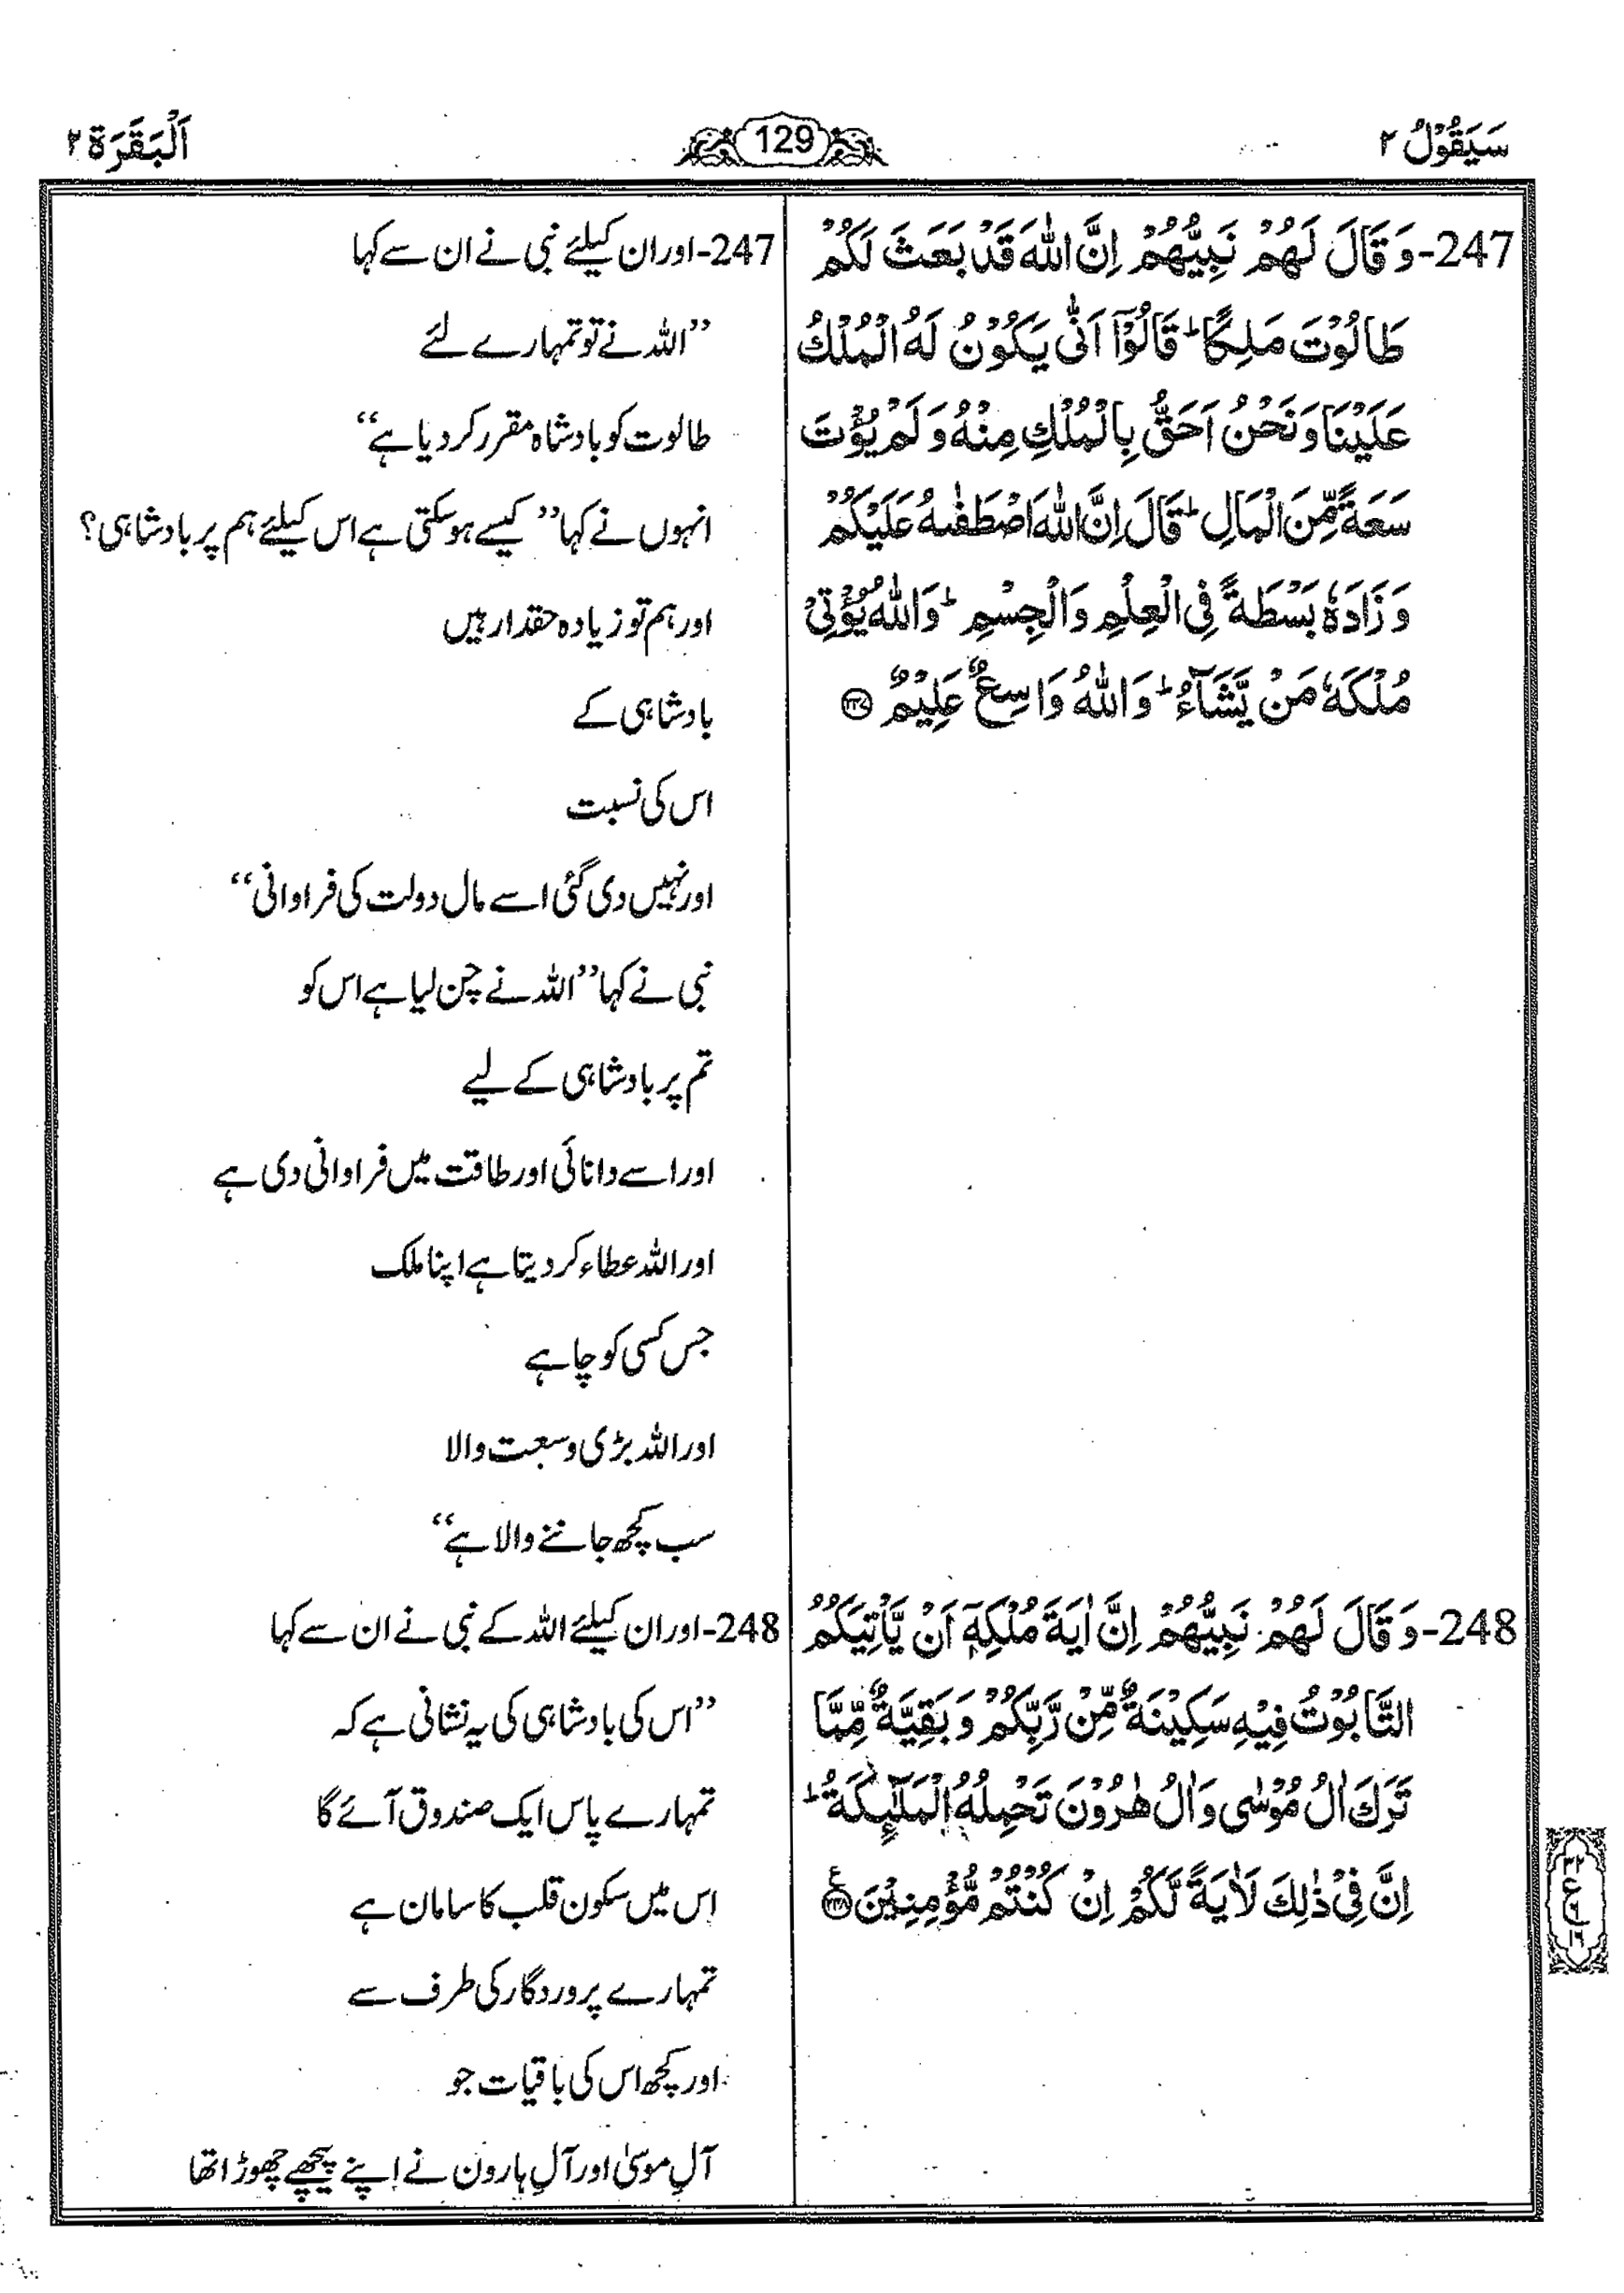 سَيَقُوْلُ ٢
129
اَلْبَقَرَة ٢
247-وَ قَالَ لَهُمْ نَبِيُّهُمْ اِنَّ اللّٰهَ قَدْ بَعَثَ لَكُمْ
طَالُوْتَ مَلِكًا ؕ قَالُوْۤا اَنّٰى يَكُوْنُ لَهُ الْمُلْكُ
عَلَيْنَا وَ نَحْنُ اَحَقُّ بِالْمُلْكِ مِنْهُ وَ لَمْ يُؤْتَ
سَعَةً مِّنَ الْمَالِ ؕ قَالَ اِنَّ اللّٰهَ اصْطَفٰىهُ عَلَيْكُمْ
وَ زَادَهٗ بَسْطَةً فِي الْعِلْمِ وَ الْجِسْمِ ؕ وَ اللّٰهُ يُؤْتِيْ
مُلْكَهٗ مَنْ يَّشَآءُ ؕ وَ اللّٰهُ وَاسِعٌ عَلِيْمٌ ﴿۲۴۷﴾
247-اور ان کیلئے نبی نے ان سے کہا
’’اللہ نے تو تمہارے لئے
طالوت کو بادشاہ مقرر کر دیا ہے‘‘
انہوں نے کہا ’’کیسے ہو سکتی ہے اس کیلئے ہم پر بادشاہی؟
اور ہم تو زیادہ حقدار ہیں
بادشاہی کے
اس کی نسبت
اور نہیں دی گئی اسے مال دولت کی فراوانی‘‘
نبی نے کہا ’’اللہ نے چن لیا ہے اس کو
تم پر بادشاہی کے لیے
اور اسے دانائی اور طاقت میں فراوانی دی ہے
اور اللہ عطاء کر دیتا ہے اپنا ملک
جس کسی کو چاہے
اور اللہ بڑی وسعت والا
سب کچھ جاننے والا ہے‘‘
248-وَ قَالَ لَهُمْ نَبِيُّهُمْ اِنَّ اٰيَةَ مُلْكِهٖۤ اَنْ يَّاْتِيَكُمُ
التَّابُوْتُ فِيْهِ سَكِيْنَةٌ مِّنْ رَّبِّكُمْ وَ بَقِيَّةٌ مِّمَّا
تَرَكَ اٰلُ مُوْسٰى وَ اٰلُ هٰرُوْنَ تَحْمِلُهُ الْمَلٰٓىِٕكَةُ ؕ
اِنَّ فِيْ ذٰلِكَ لَاٰيَةً لَّكُمْ اِنْ كُنْتُمْ مُّؤْمِنِيْنَ ﴿۲۴۸﴾ ع
248-اور ان کیلئے اللہ کے نبی نے ان سے کہا
’’اس کی بادشاہی کی یہ نشانی ہے کہ
تمہارے پاس ایک صندوق آئے گا
اِس میں سکون قلب کا سامان ہے
تمہارے پروردگار کی طرف سے
اور کچھ اس کی باقیات جو
آلِ موسیٰ اور آلِ ہارون نے اپنے پیچھے چھوڑا تھا
٣٢
ع
١٦